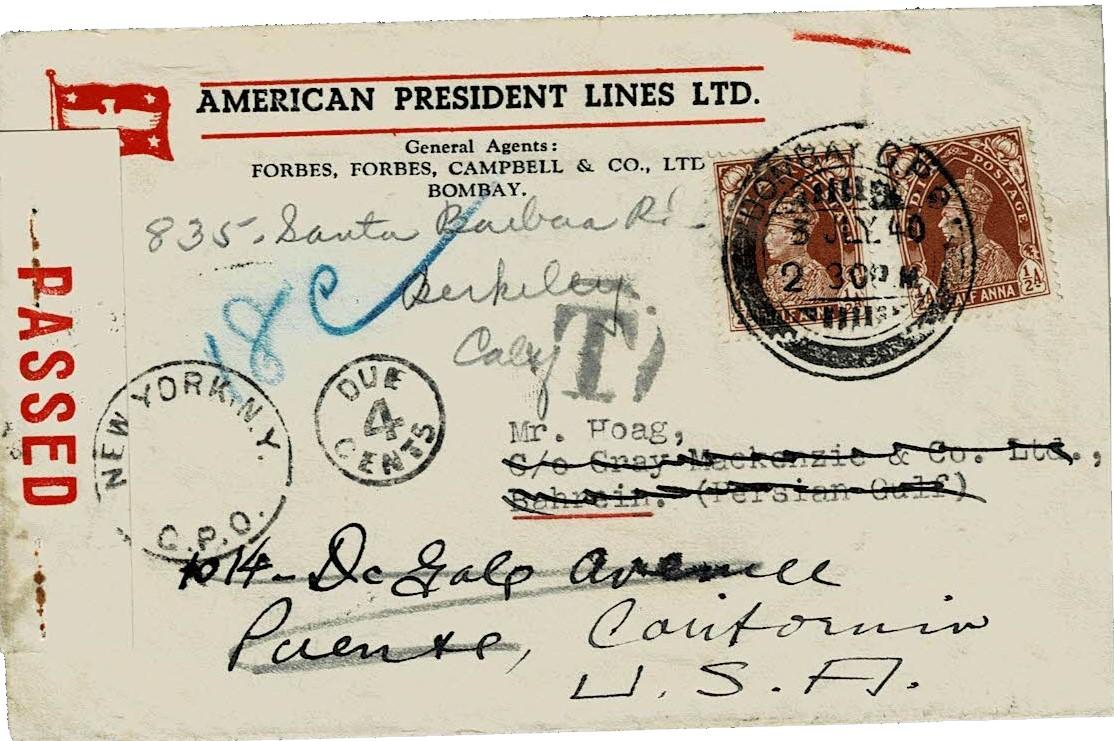 AMERICAN PRESIDENT LINES LTD.
General Agents:
FORBES, FORBES, CAMPBELL & CO., LTD
BOMBAY.
835. Santa Barbara Rd
Berkeley
Calif
18c
T
BOMBAY G.P.O.
3 JLY. 40
2 30P M
POSTAGE
½A
HALF ANNA
½A
PASSED
NEW YORK, N.Y.
G.P.O.
DUE
4
CENTS
Mr. Hoag,
C/o Gray Mackenzie & Co. Ltd.,
Bahrein. (Persian Gulf)
1014 - De Gale Avenue
Puente, California
U.S.A.